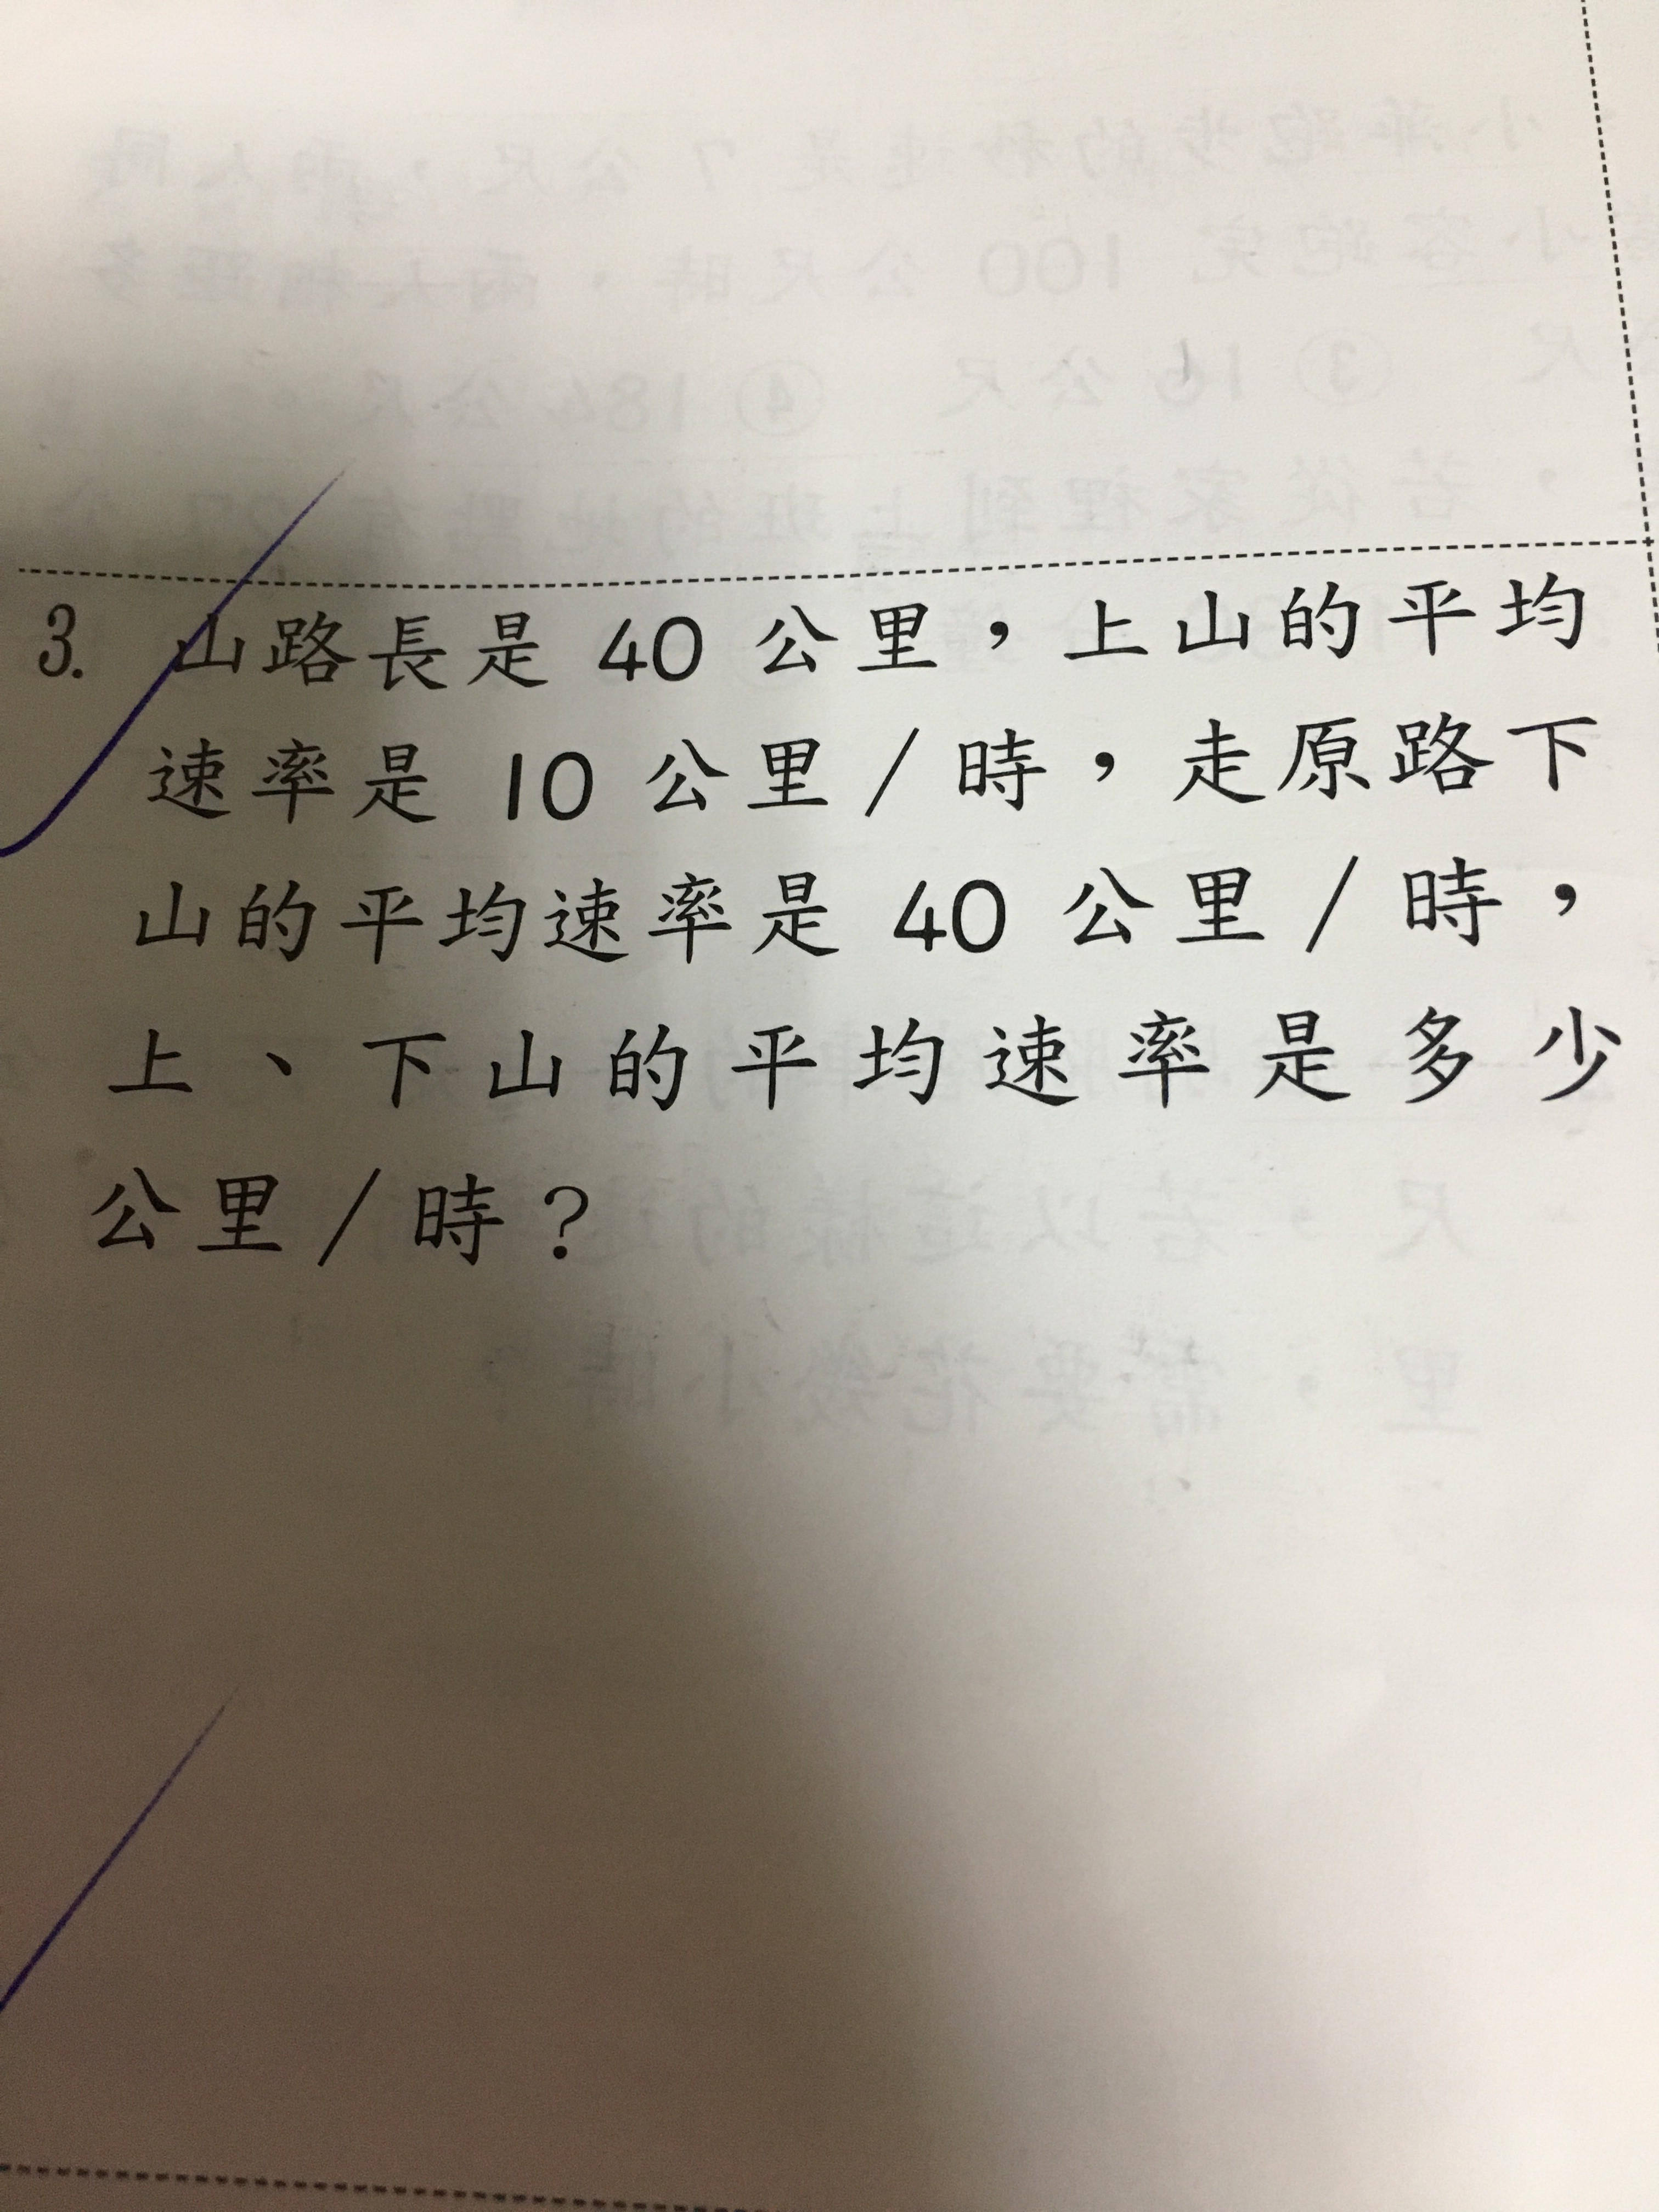 3. 山路長是 40 公里，上山的平均
速率是 10 公里/時，走原路下
山的平均速率是 40 公里/時，
上、下山的平均速率是多少
公里/時？